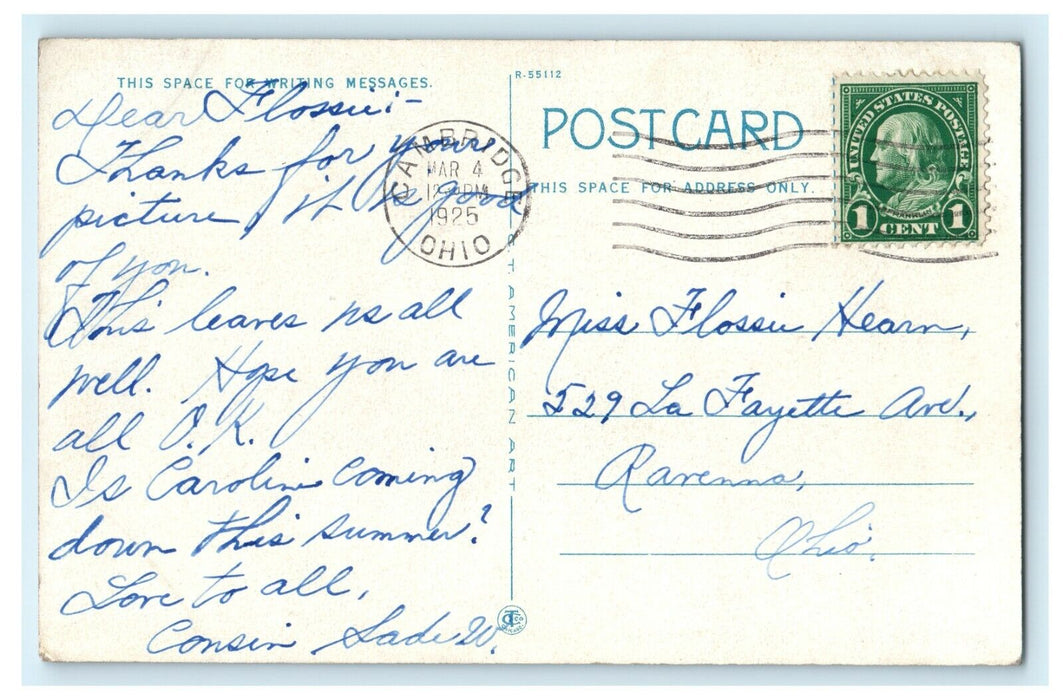 THIS SPACE FOR WRITING MESSAGES.
Dear Flossie:-
Thanks for your
picture, it is good
of you.
This leaves us all
well. Hope you are
all O.K.
Is Caroline coming
down this summer?
Love to all,
Cousin Sade W.
CAMBRIDGE
MAR 4
12 PM
1925
OHIO
R-55112
POST CARD
THIS SPACE FOR ADDRESS ONLY.
UNITED STATES POSTAGE
FRANKLIN
1 CENT 1
Miss Flossie Hearn,
529 La Fayette Ave.,
Ravenna,
Ohio.
C.T. AMERICAN ART